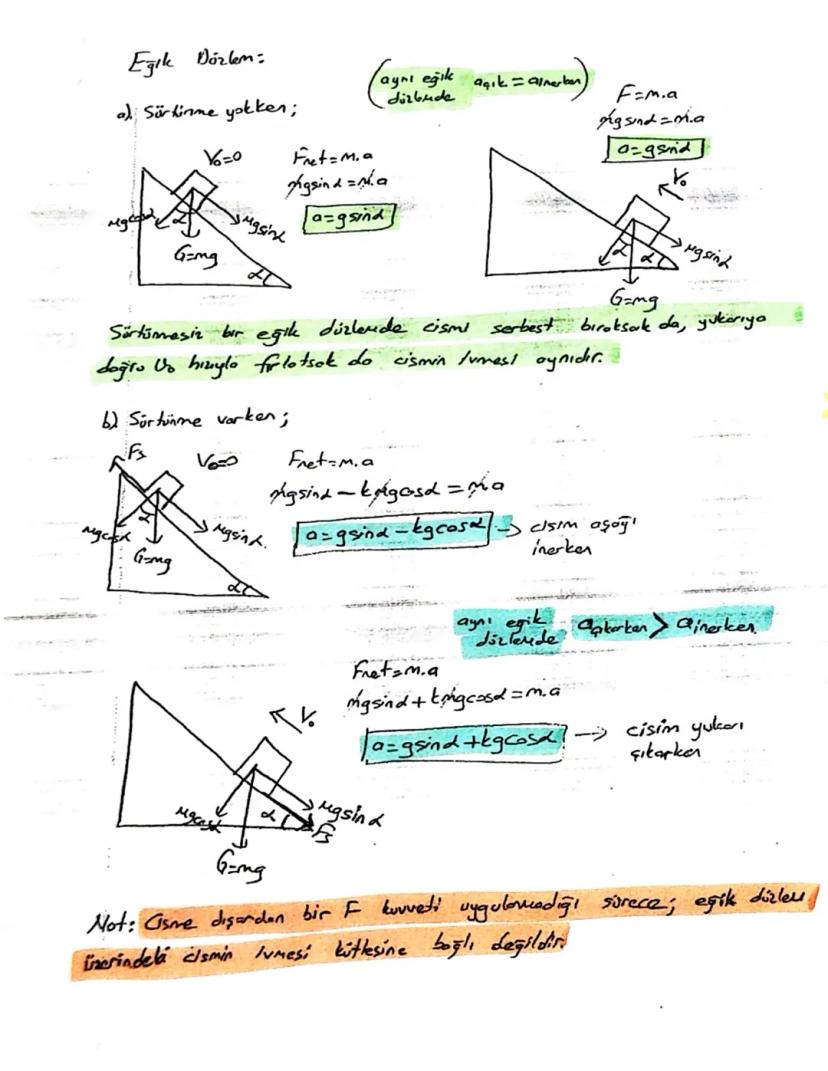 Eğik Düzlem:
(aynı eğik düzlemde açık = ainerken)
a) Sürtünme yokken;
V₀=0
Fnet=m.a
mgsinα=m.a
a=gsinα
mgcosα
α
mgsinα
G=mg
α
F=m.a
mgsinα=m.a
a=gsinα
V₀
α
α
mgsinα
G=mg
Sürtünmesiz bir eğik düzlemde cismi serbest bıraksak da, yukarıya
doğru V₀ hızıyla fırlatsak da cismin ivmesi aynıdır.
b) Sürtünme varken;
Fs
V₀=0
Fnet=m.a
mgsinα - kmgcosα = m.a
a=gsinα - kgcosα → cisim aşağı
inerken
mgcosα
α
mgsinα
G=mg
α
aynı eğik düzlemde açıkarken > ainerken
Fnet=m.a
mgsinα + kmgcosα = m.a
a=gsinα + kgcosα → cisim yukarı
çıkarken
V₀
mgcosα
α
mgsinα
Fs
G=mg
Not: Cisme dışarıdan bir F kuvveti uygulanmadığı sürece; eğik düzlem
üzerindeki cismin ivmesi kütlesine bağlı değildir.